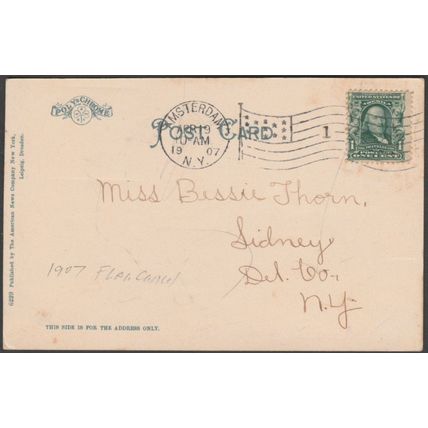 POLY-CHROME
POST CARD
AMSTERDAM
APR 19
10-AM
19 07
N.Y.
1
1
ONE CENT
Miss Bessie Thorn,
Sidney
Del. Co.,
N.Y.
1907 FLAG CANCEL
6229 Published by The American News Company New York,
Leipzig, Dresden.
THIS SIDE IS FOR THE ADDRESS ONLY.